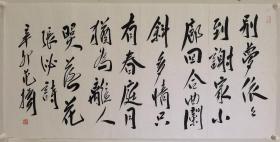 別夢依々
到謝家小
廊回合曲闌
斜多情只
有春庭月
猶為離人
照落花
張泌詩
辛卯